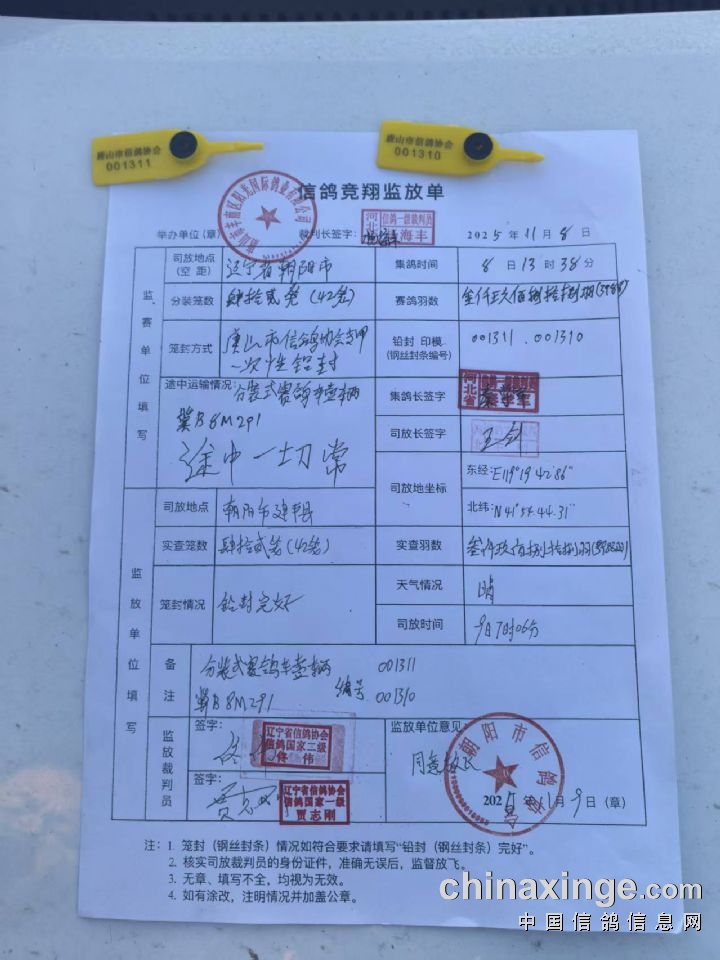 唐山市信鸽协会
001311
唐山市信鸽协会
001310
信鸽竞翔监放单
举办单位(章)
裁判长签字:
河北
信鸽一级裁判员
海丰
2025年11月8日
监赛单位填写
司放地点
(空距)
辽宁省朝阳市
集鸽时间
8日13时38分
分装笼数
肆拾贰笼(42笼)
赛鸽羽数
笼封方式
唐山市信鸽协会专用
一次性铅封
铅封 印模
(钢丝封条编号)
001311.001310
途中运输情况:
分装式赛鸽车壹辆
冀B8M291
途中一切常
集鸽长签字
河北省
司放长签字
王剑
司放地坐标
东经:E119°19 42.86"
北纬:N41°54.44.31"
监放单位填写
司放地点
朝阳市建平县
实查笼数
肆拾贰笼(42笼)
实查羽数
笼封情况
铅封完好
天气情况
晴
司放时间
9日7时06分
备注
分装式赛鸽车壹辆
冀B8M291
编号
001311
001310
监放裁判员
签字:
辽宁省信鸽协会
信鸽国家二级
佟伟
签字:
贾志刚
辽宁省信鸽协会
信鸽国家一级
贾志刚
监放单位意见:
同意放飞
朝阳市信鸽协会
2025年11月9日(章)
注:1. 笼封(钢丝封条)情况如符合要求请填写“铅封(钢丝封条)完好”。
2. 核实司放裁判员的身份证件,准确无误后,监督放飞。
3. 无章、填写不全,均视为无效。
4. 如有涂改,注明情况并加盖公章。
chinaxinge.com
中国信鸽信息网